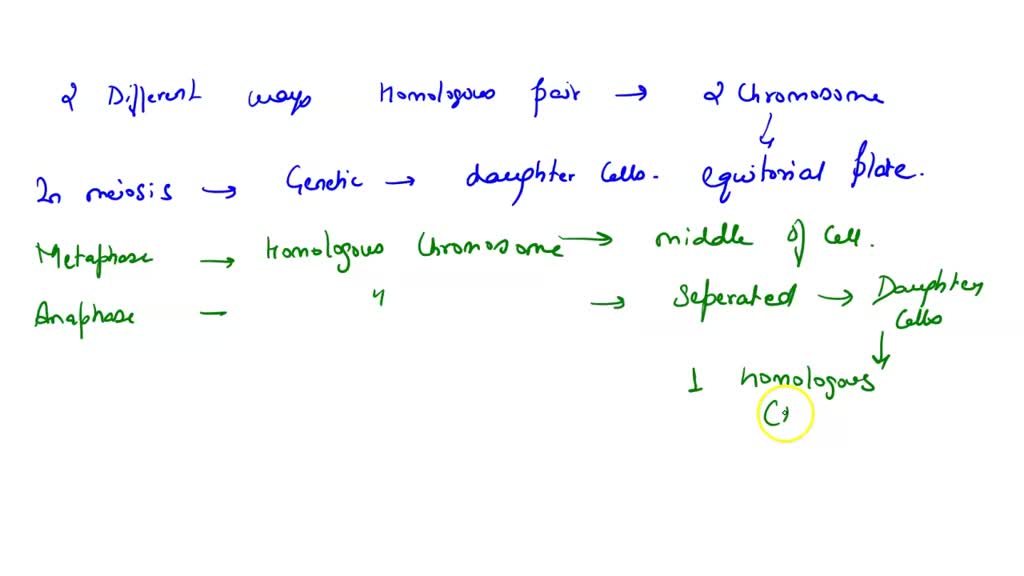 2 Different ways Homologous pair → 2 Chromosome
↓
In meiosis → Genetic → daughter Cells. equitorial plate.
Metaphase → Homologous Chromosome → middle of Cell.
Anaphase - " → Seperated → Daughter
Cells
↓
1 homologous